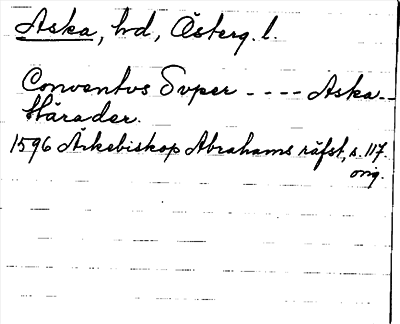 Aska, hd, Österg. l.
Conventvs Svper ---- Aska--
Härader.
1596 Ärkebiskop Abrahams räfst, s. 117.
orig.